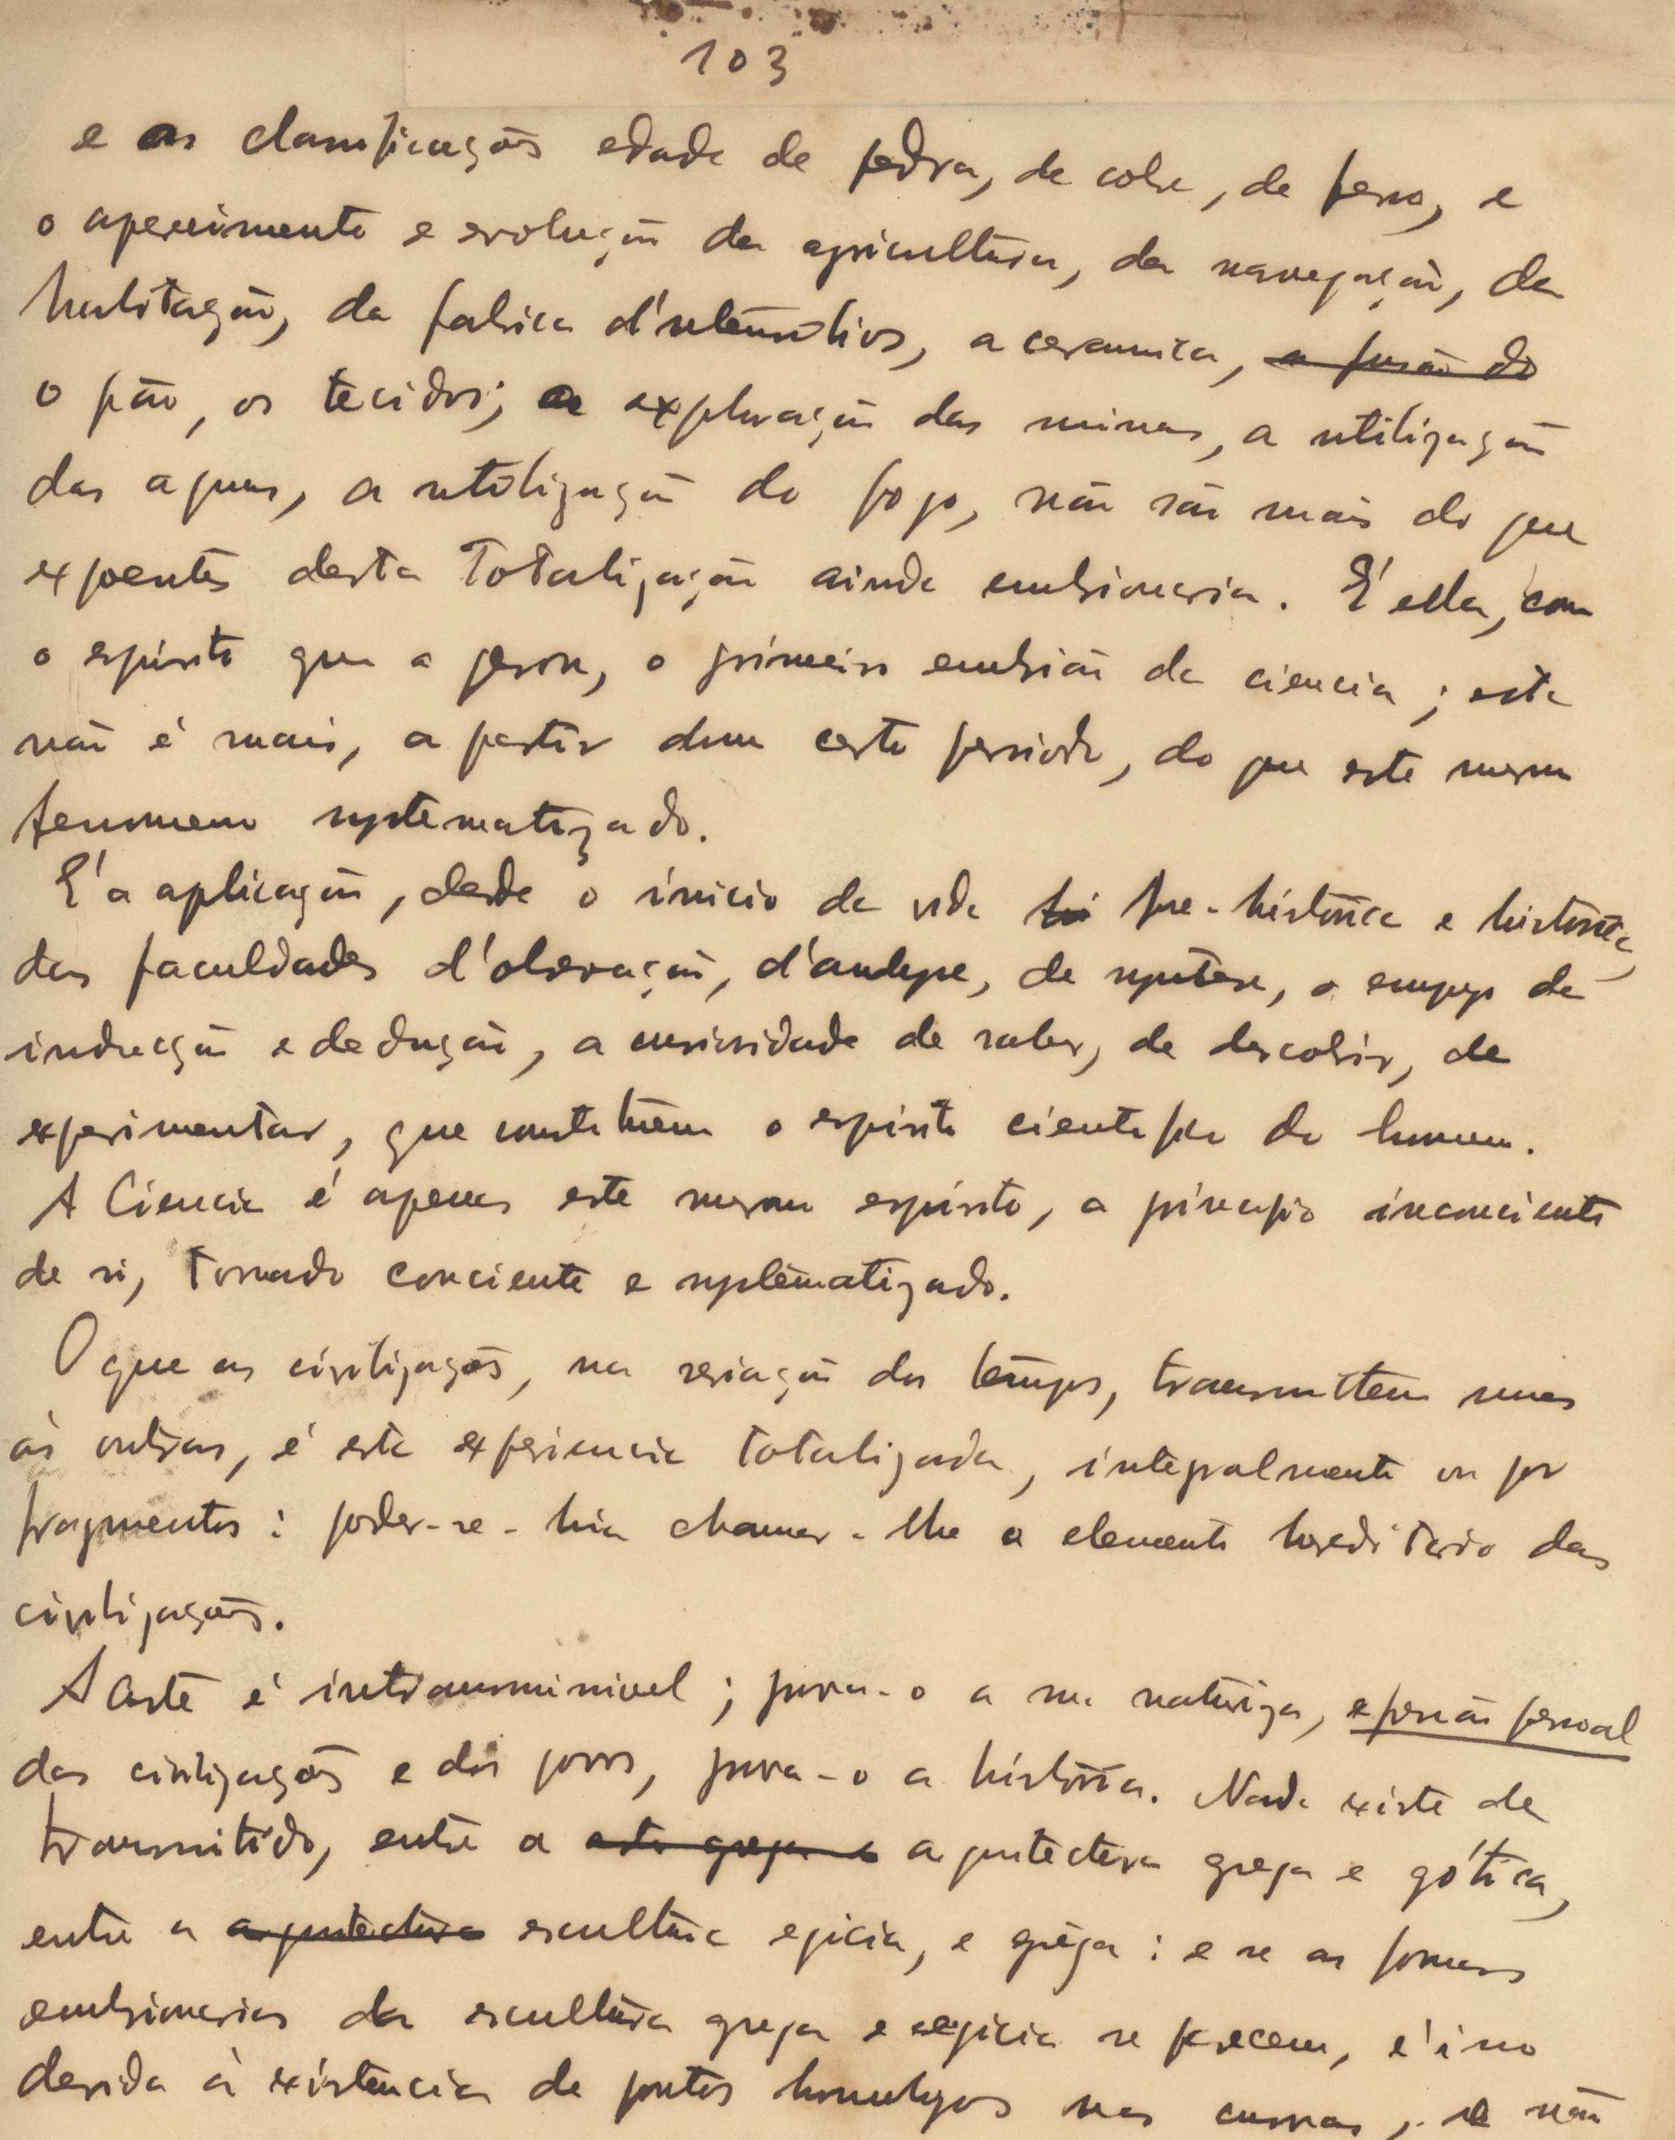 103
e as classificações edade de pedra, de cobre, de ferro, e
o aparecimento e evolução da agricultura, da navegação, da
habitação, da fabrica d'utensilios, a ceramica, a fusão do
o pão, os tecidos; a exploração das minas, a utilização
das aguas, a utilização do fogo, não são mais do que
expoentes desta Totalização ainda embrionaria. É ella, com
o espirito que a gerou, o primeiro embrião da ciencia; esta
não é mais, a partir dum certo periodo, do que este mesmo
fenomeno systematizado.
É a aplicação, desde o inicio da vida hi pre-historica e historica,
das faculdades d'observação, d'analyse, de syntese, o emprego da
inducção e dedução, a curiosidade de saber, de descobrir, de
experimentar, que constituem o espirito cientifico do homem.
A Ciencia é apenas este mesmo espirito, a principio inconciente
de si, tornado conciente e systematizado.
O que as civilizações, na seriação dos tempos, transmittem umas
ás outras, é esta experiencia totalizada, integralmente ou por
fragmentos: poder-se-hia chamar-lhe o elemento hereditario das
civilizações.
A Arte é intransmissivel; prova-o a sua natureza, expressão pessoal
das civilizações e dos povos, prova-o a historia. Nada existe de
transmitido, entre a arte grega e a arquitectura grega e gótica,
entre a arquitectura escultura egicia, e grega: e se as formas
embrionarias da escultura grega e egicia se parecem, é isso
devido à existencia de pontos homologos nas curvas, se não